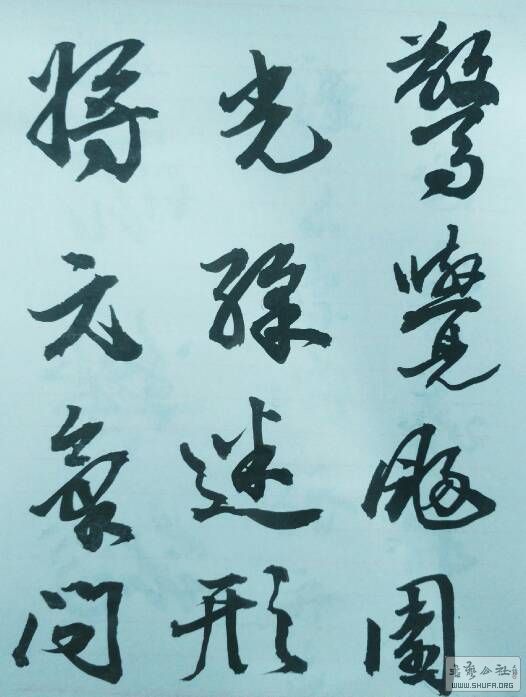 驚覺園
光迷形
將元氣問
書藝公社
WWW.SHUFA.ORG